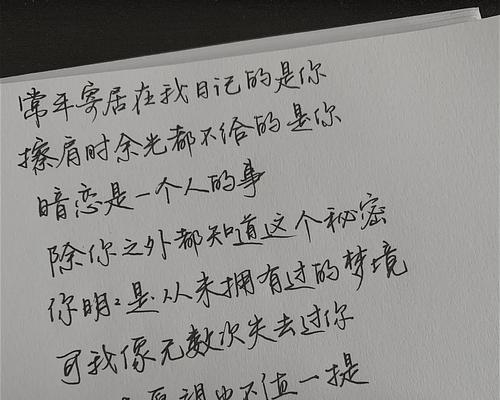 常年寄居在我日记的是你
擦肩时余光都不给的是你
暗恋是一个人的事
除你之外都知道这个秘密
你明:是从未拥有过的梦境
可我像无数次失去过你
愿望也不值一提